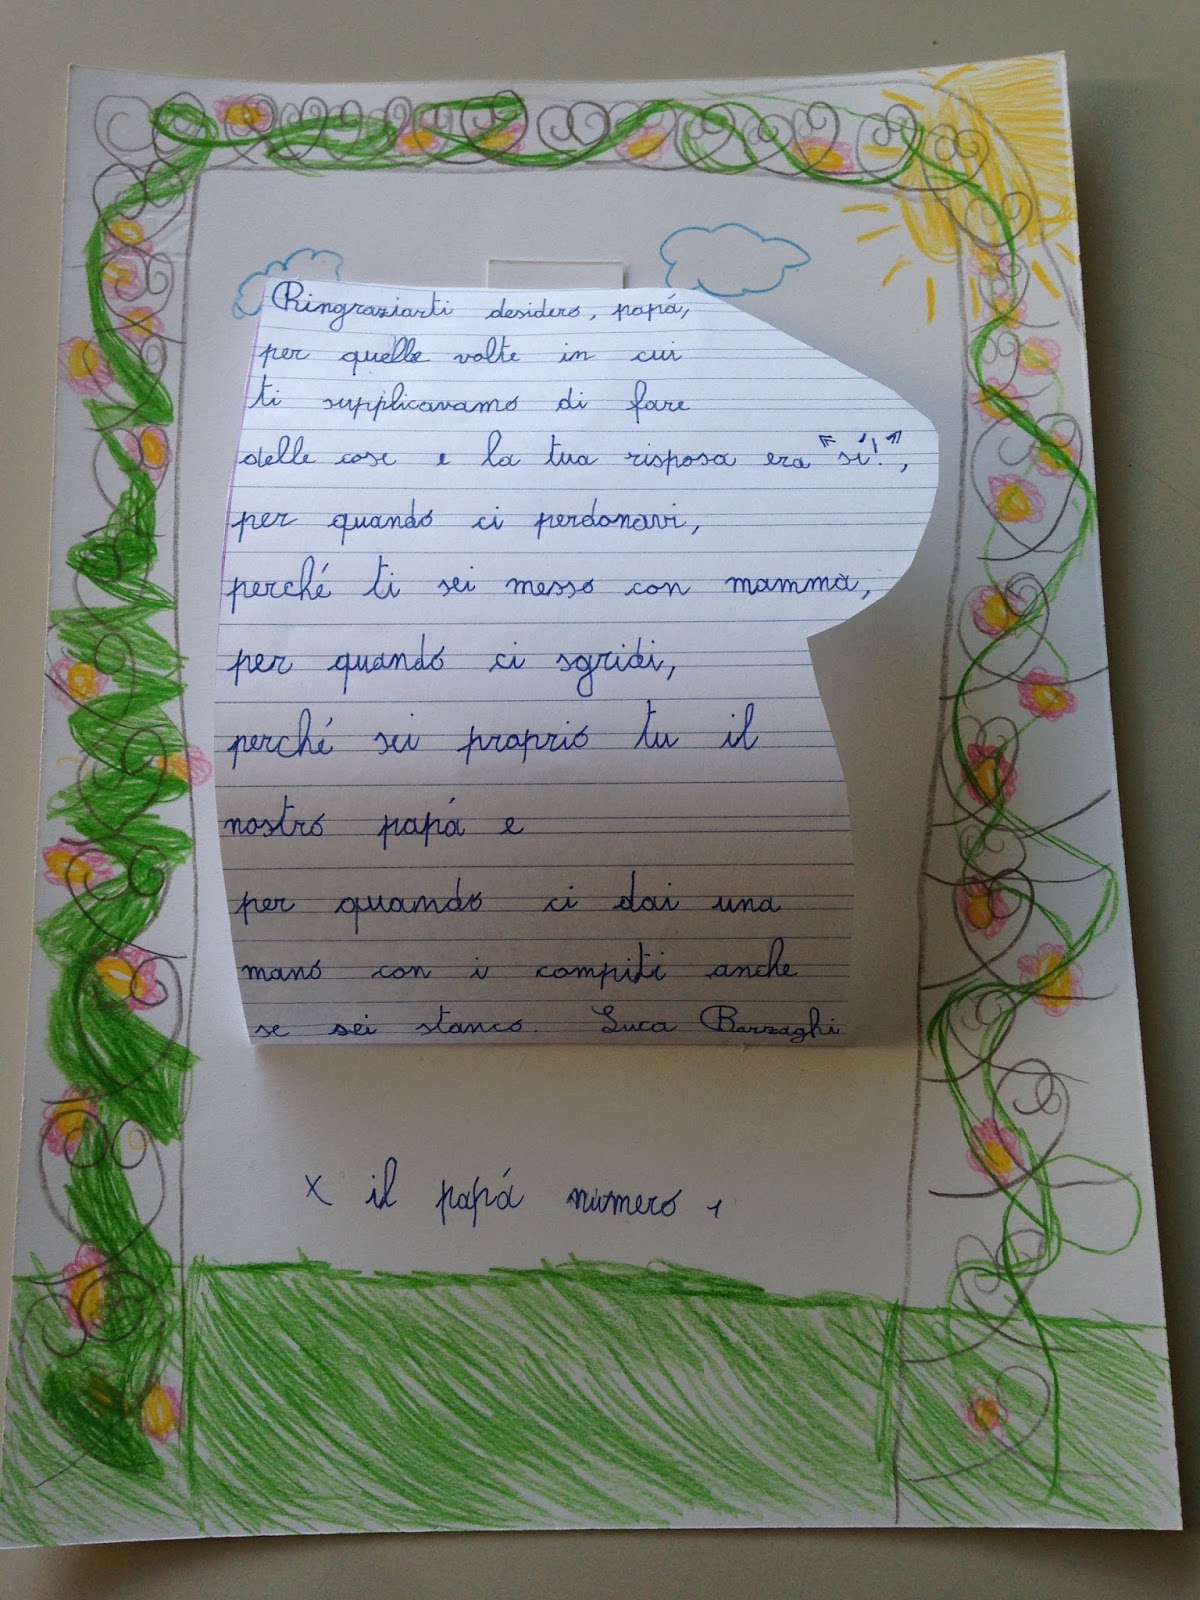 Ringraziarti desidero, papá,
per quelle volte in cui
ti supplicavamo di fare
delle cose e la tua risposa era "sí!",
per quando ci perdonavi,
perché ti sei messo con mamma,
per quando ci sgridi,
perché sei proprio tu il
nostro papá e
per quando ci dai una
mano con i compiti anche
se sei stanco. Luca Barzaghi
x il papá numero 1